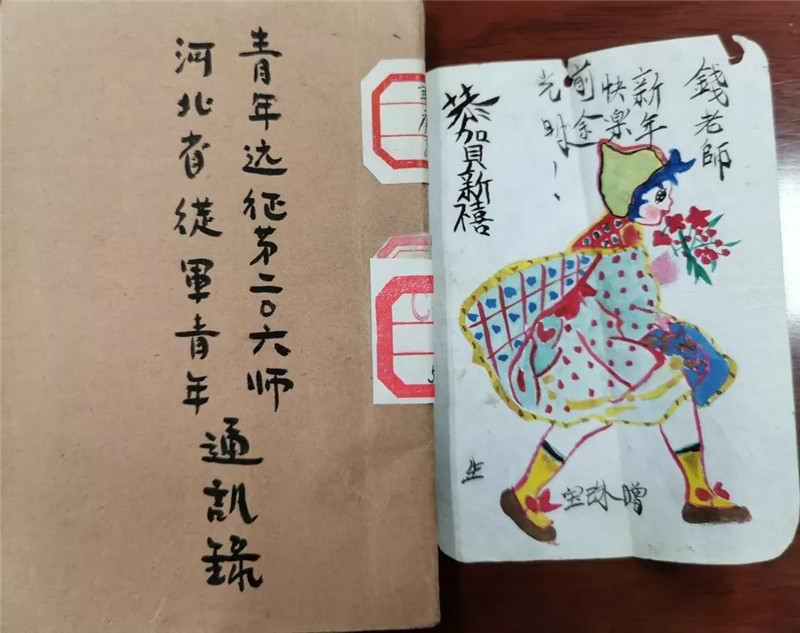 青年远征第二〇六师
河北省從軍青年
通訊錄
錢老師
新年
快樂
前途
光明!
恭賀新禧
生
宝珠贈